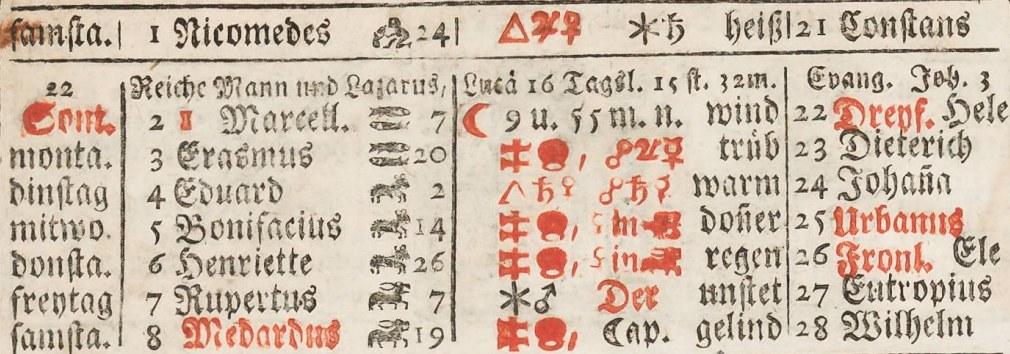 samsta. 1 Nicomedes 24 △♃♀ ⚹♄ heiß 21 Constans
22 Reiche Mann und Lazarus, Lucä 16 Tagsl. 15 st. 32m. Evang. Joh. 3
Sont. 2 1 Marcell. 7 ☾ 9 u. 55 m. n. wind 22 Dreyf. Hele
monta. 3 Erasmus 20 ☍♃☿ trüb 23 Dieterich
dinstag 4 Eduard 2 △♄♀ ☍♄☿ warm 24 Johaña
mitwo. 5 Bonifacius 14 doñer 25 Urbanus
donsta. 6 Henriette 26 regen 26 Fronl. Ele
freytag 7 Rupertus 7 ⚹♂ Der unstet 27 Eutropius
samsta. 8 Medardus 19 Cap. gelind 28 Wilhelm